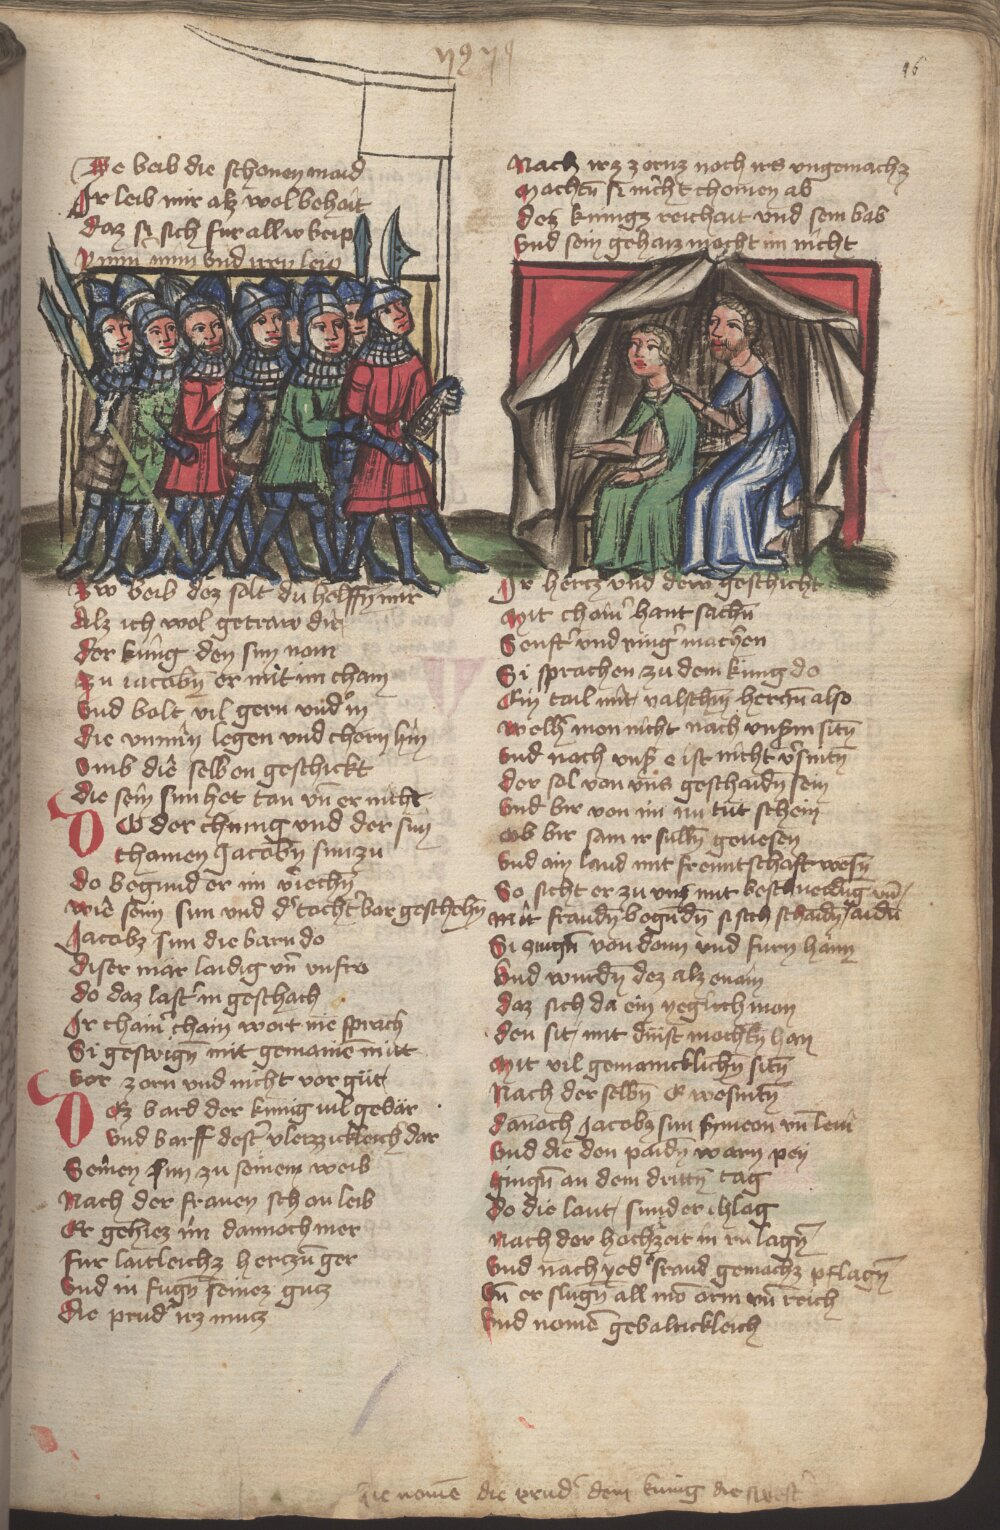 46
Ze beib die schonen maid
Ir leib mir alz wol behait
daz si sich fur alliv beip
Nim min und
Iw beib dez solt du helffn mir
Alz ich wol getraw dir
der kunig den sun nom
Zu iacobn er mit im cham
Und bolt vil gern und
die unmin legen und chern hin
Umb die selben geschickt
die sein sun het tan vn er nicht
DO der chunig und der sun
chamen Jacobn sun zu
do begund er im
wie seim sun und d tocht bar geschehn
Jacobz sun die barn do
diser mar laidig vn unfro
do daz last in geschach
Ir chainer chain wort nie sprach
Si geswign mit gemainem mut
vor zorn und nicht vor gut
DEz bard der kunig vil gebar
Und barff dest vleizzickleich dar
Seinen sun zu seinem weib
Nach der frauen schon leib
Er gehiez im dannoch mer
fur laitleichz herczn ger
Und in fugn seinez gutz
die prud irz mutz
Nach irz zornz noch irs ungemachz
Mochtn si nicht chomen ab
dez kunigz reichait und sein hab
Und sein gehaiz mocht im nicht
Ir hercz und dew geschicht
Mit chainer hant sachn
Senft und ring machen
Si sprachen zu dem kunig do
Ein tail mit valschm herczn also
Welh mon nicht nach unserm sitn
Und nach unser e ist nicht versnitn
der sol von uns geschaidn sein
Und bir von im nu tut schein
Ob bir sam ir sulln gebesen
Und ain land mit freuntschaft wesn
So sicht er zu uns mit
Mit fraudn begundn si sich schaidn
Si giengn von dann und furn haim
Und wurdn dez alz enain
daz sich da ein yeglich mon
den sit mit dinst mochtn han
Mit vil gemaincklichn sitn
Nach der selbn E besnitn
dannoch Jacobz sun symeon vn leui
Und die den paidn warn pey
giengn an dem drittn tag
do die laut sunder chlag
Nach der hochzeit in ru lagn
Und nach yed fraud gemachz pflagn
Un er slugn all mo arm vn reich
Und nomen gebaltickleich
Sie nomen die prud dem kunig die swest